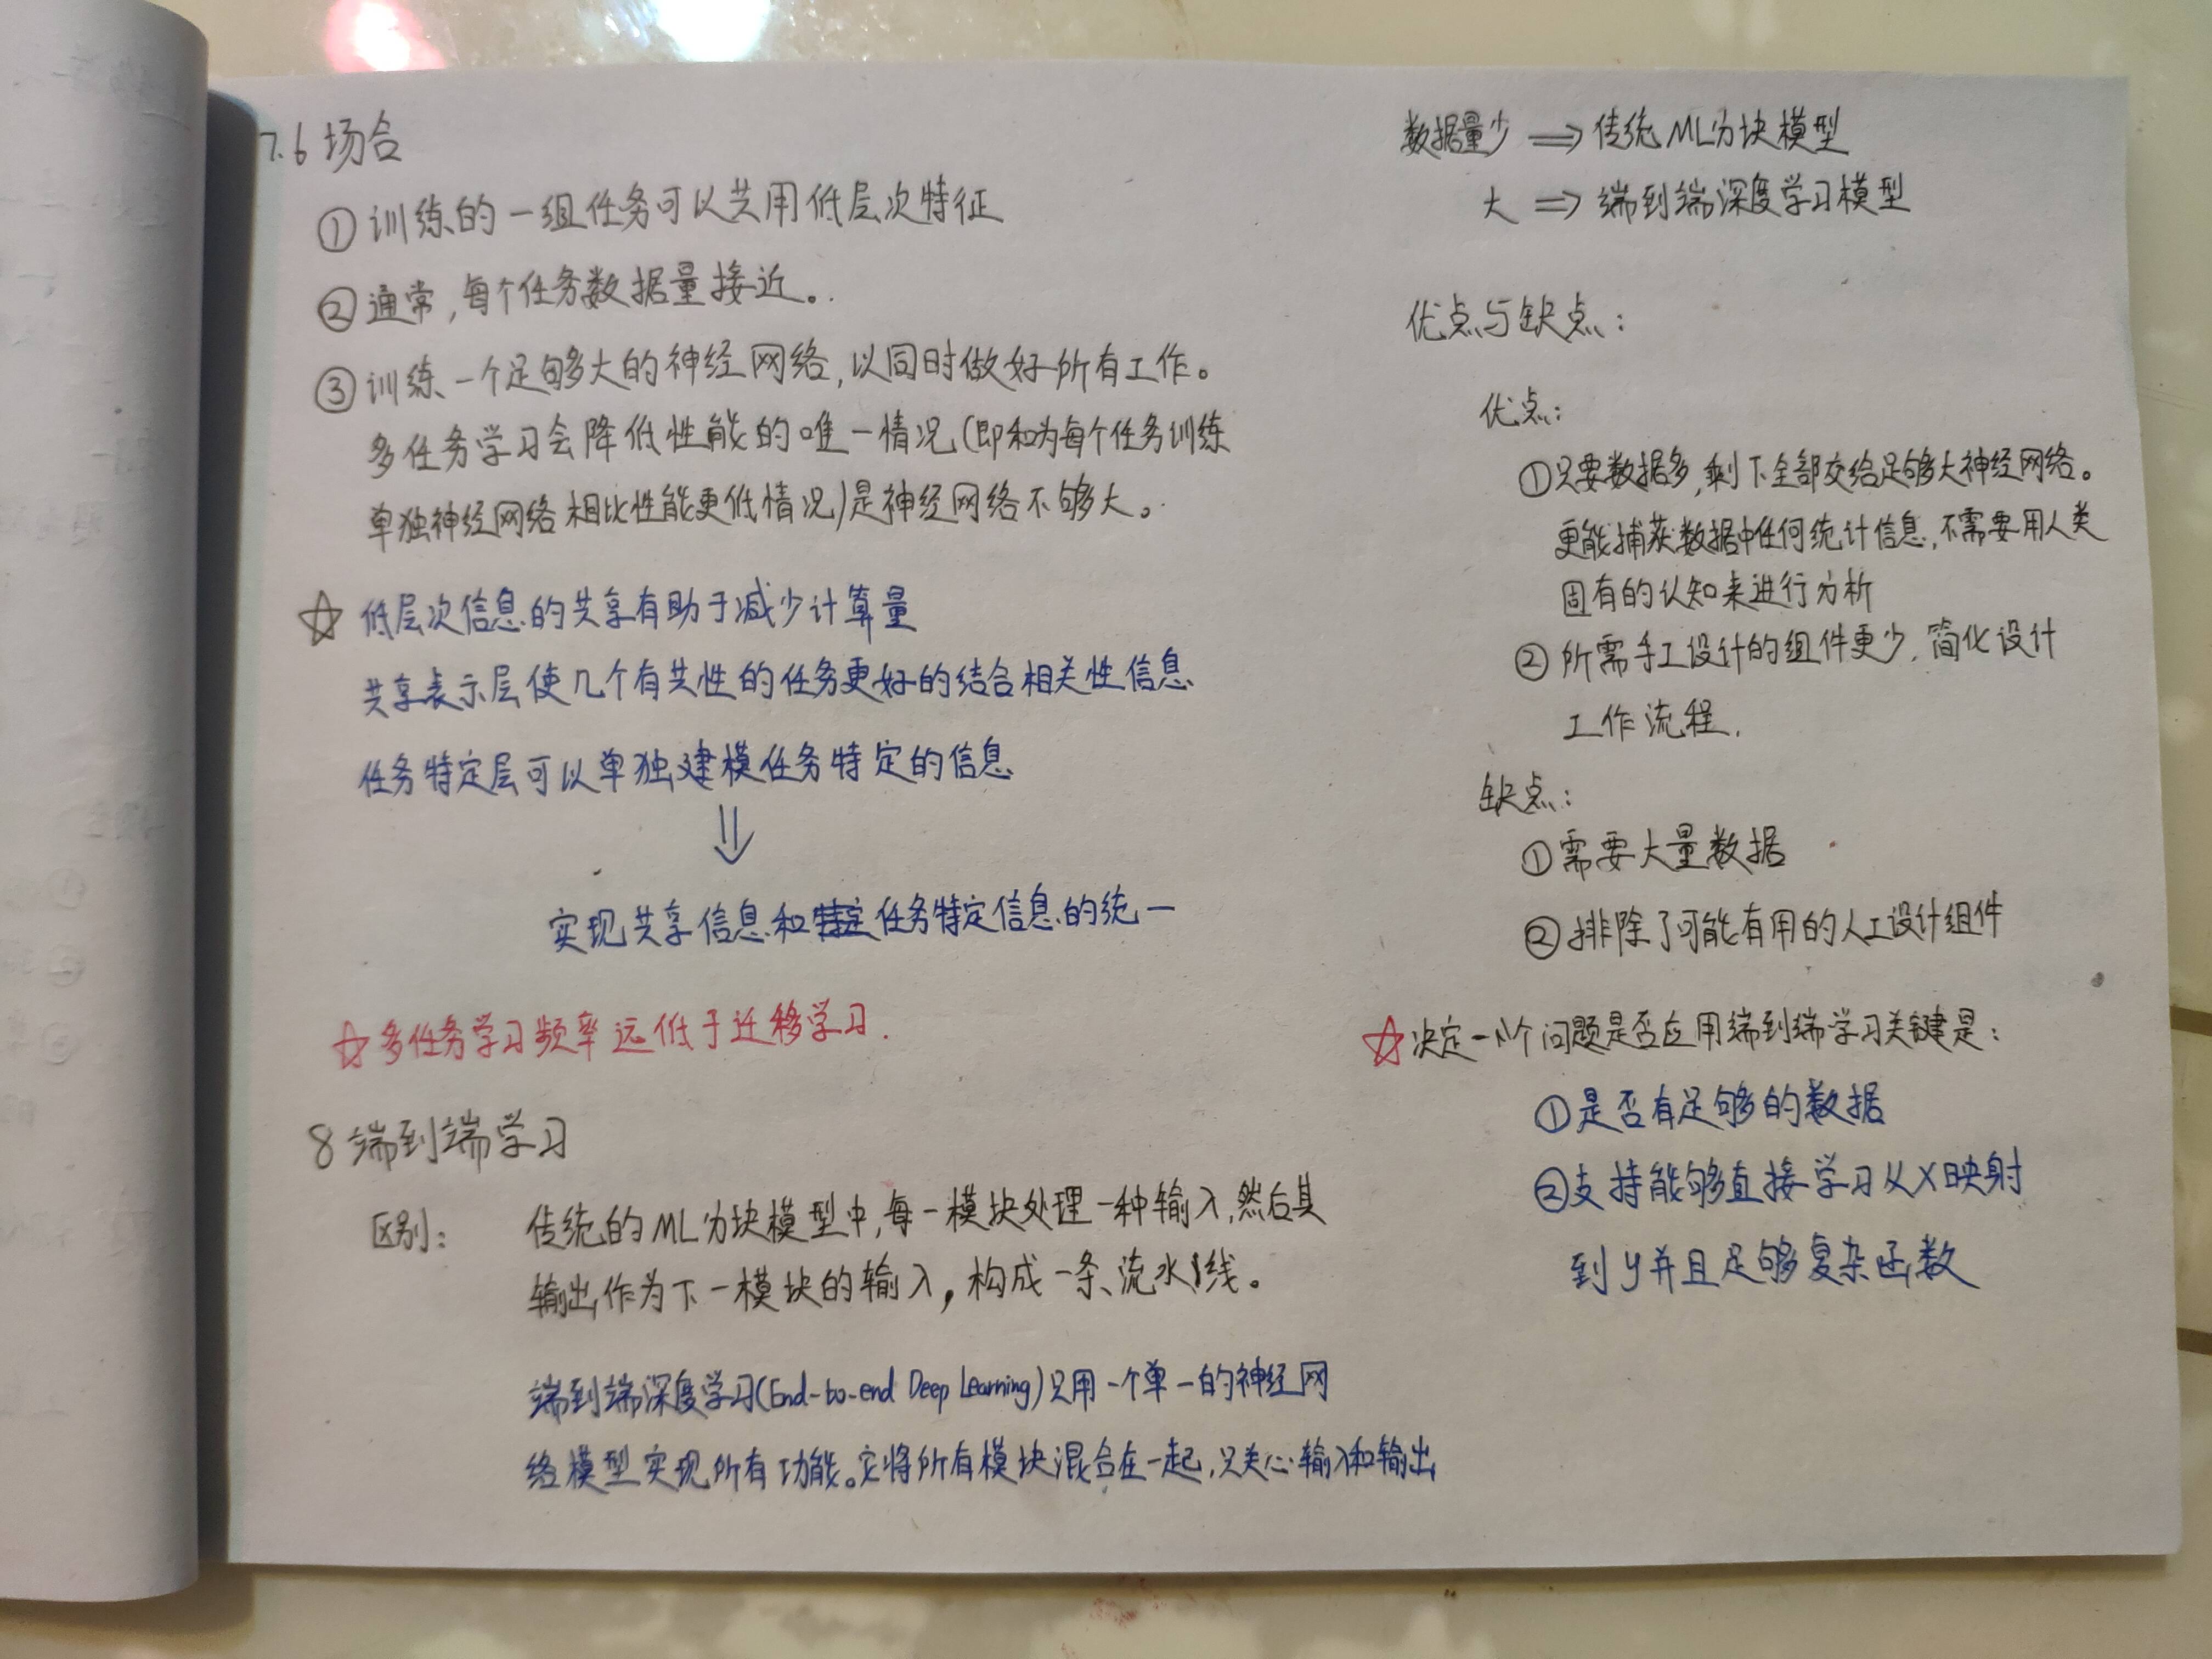 7.6 场合
① 训练的一组任务可以共用低层次特征
② 通常,每个任务数据量接近。
③ 训练一个足够大的神经网络,以同时做好所有工作。
多任务学习会降低性能的唯一情况(即和为每个任务训练
单独神经网络相比性能更低情况)是神经网络不够大。
☆ 低层次信息的共享有助于减少计算量
共享表示层使几个有共性的任务更好的结合相关性信息
任务特定层可以单独建模任务特定的信息
⇓
实现共享信息和任务特定信息的统一
☆多任务学习频率远低于迁移学习.
8 端到端学习
区别: 传统的ML分块模型中,每一模块处理一种输入,然后其
输出作为下一模块的输入,构成一条流水线。
端到端深度学习(End-to-end Deep Learning)只用一个单一的神经网
络模型实现所有功能。它将所有模块混合在一起,只关心输入和输出
数据量少 ⇒ 传统ML分块模型
大 ⇒ 端到端深度学习模型
优点与缺点:
优点:
①只要数据多,剩下全部交给足够大神经网络。
更能捕获数据中任何统计信息,不需要用人类
固有的认知来进行分析
② 所需手工设计的组件更少,简化设计
工作流程.
缺点:
①需要大量数据
②排除了可能有用的人工设计组件
☆决定一个问题是否应用端到端学习关键是:
①是否有足够的数据
②支持能够直接学习从X映射
到y并且足够复杂函数